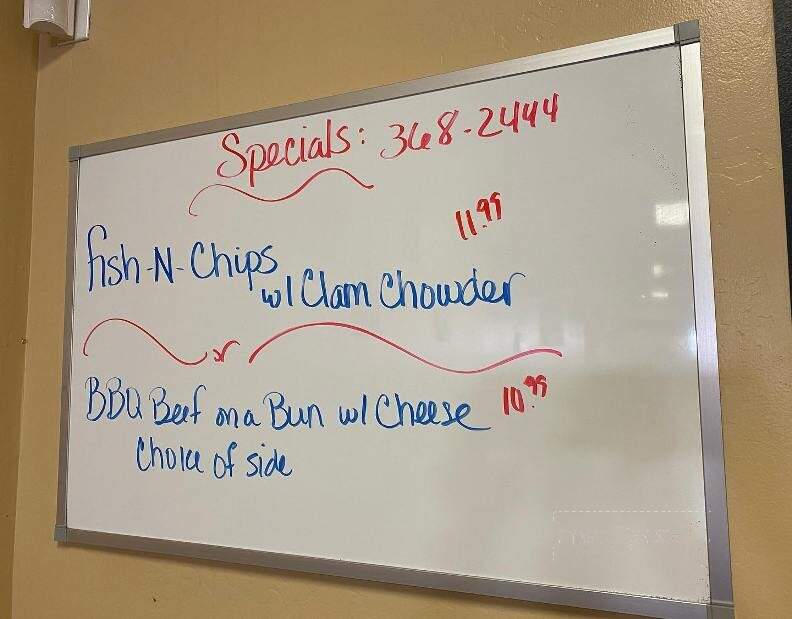 Specials: 368-2444
11.99
Fish-N-Chips
w/ Clam Chowder
or
BBQ Beef on a Bun w/ Cheese 10.99
Choice of side